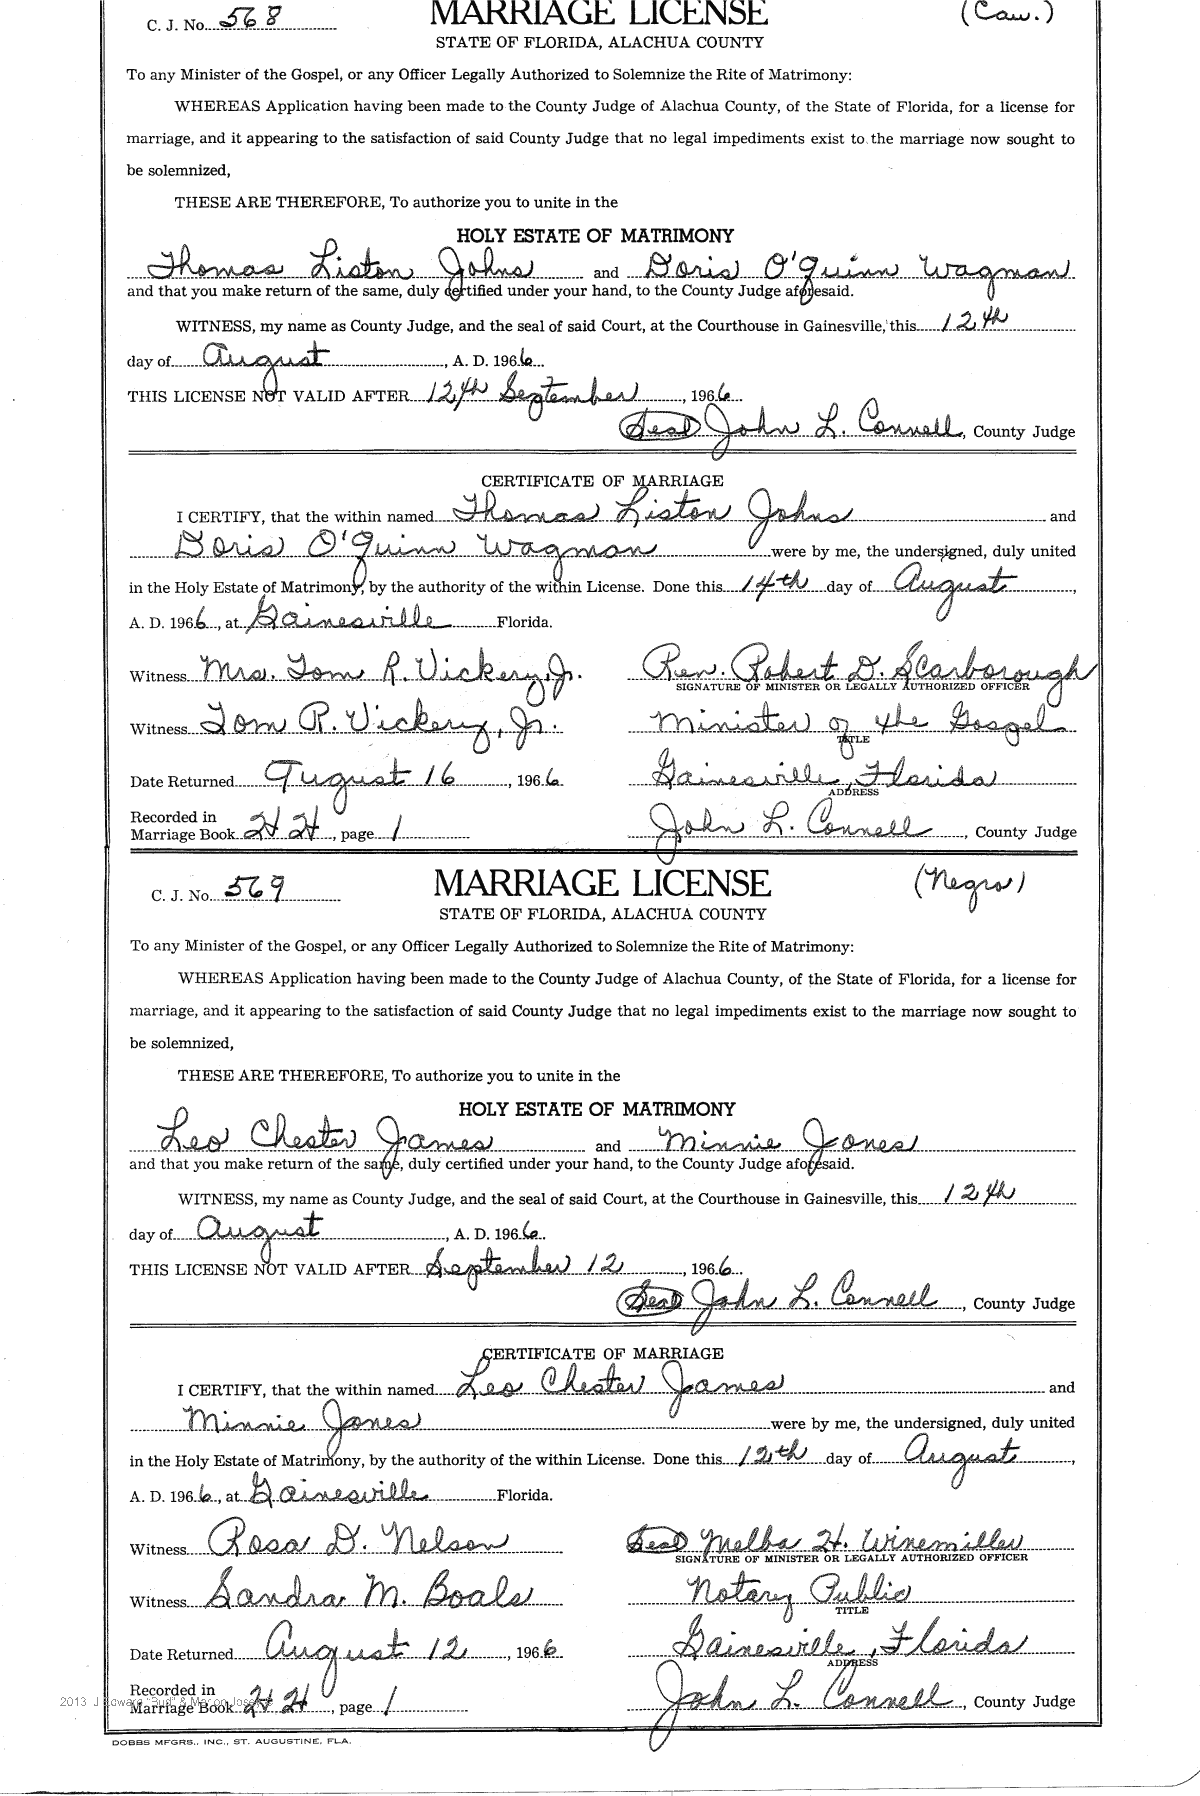 C. J. No. 568 MARRIAGE LICENSE (Cau.)
STATE OF FLORIDA, ALACHUA COUNTY
To any Minister of the Gospel, or any Officer Legally Authorized to Solemnize the Rite of Matrimony:
WHEREAS Application having been made to the County Judge of Alachua County, of the State of Florida, for a license for
marriage, and it appearing to the satisfaction of said County Judge that no legal impediments exist to the marriage now sought to
be solemnized,
THESE ARE THEREFORE, To authorize you to unite in the
HOLY ESTATE OF MATRIMONY
Thomas Liston Johns and Doris O'Quinn Wagman
and that you make return of the same, duly certified under your hand, to the County Judge aforesaid.
WITNESS, my name as County Judge, and the seal of said Court, at the Courthouse in Gainesville, this 12th
day of August, A. D. 1966
THIS LICENSE NOT VALID AFTER 12th September, 1966
(Seal) John L. Connell, County Judge
CERTIFICATE OF MARRIAGE
I CERTIFY, that the within named Thomas Liston Johns and
Doris O'Quinn Wagman were by me, the undersigned, duly united
in the Holy Estate of Matrimony, by the authority of the within License. Done this 14th day of August,
A. D. 1966, at Gainesville Florida.
Witness Mrs. Tom R. Vickery, Jr. Rev. Robert D. Scarborough
SIGNATURE OF MINISTER OR LEGALLY AUTHORIZED OFFICER
Witness Tom R. Vickery, Jr. Minister of the Gospel
TITLE
Date Returned August 16, 1966 Gainesville, Florida
ADDRESS
Recorded in
Marriage Book HH, page 1 John L. Connell, County Judge
C. J. No. 569 MARRIAGE LICENSE (Negro)
STATE OF FLORIDA, ALACHUA COUNTY
To any Minister of the Gospel, or any Officer Legally Authorized to Solemnize the Rite of Matrimony:
WHEREAS Application having been made to the County Judge of Alachua County, of the State of Florida, for a license for
marriage, and it appearing to the satisfaction of said County Judge that no legal impediments exist to the marriage now sought to
be solemnized,
THESE ARE THEREFORE, To authorize you to unite in the
HOLY ESTATE OF MATRIMONY
Leo Chester James and Minnie Jones
and that you make return of the same, duly certified under your hand, to the County Judge aforesaid.
WITNESS, my name as County Judge, and the seal of said Court, at the Courthouse in Gainesville, this 12th
day of August, A. D. 1966
THIS LICENSE NOT VALID AFTER September 12, 1966
(Seal) John L. Connell, County Judge
CERTIFICATE OF MARRIAGE
I CERTIFY, that the within named Leo Chester James and
Minnie Jones were by me, the undersigned, duly united
in the Holy Estate of Matrimony, by the authority of the within License. Done this 12th day of August,
A. D. 1966, at Gainesville Florida.
Witness Rosa D. Nelson (Seal) Melba H. Winemiller
SIGNATURE OF MINISTER OR LEGALLY AUTHORIZED OFFICER
Witness Sandra M. Boals Notary Public
TITLE
Date Returned August 12, 1966 Gainesville, Florida
ADDRESS
Recorded in
Marriage Book HH, page 1 John L. Connell, County Judge
2013 J Edward "Bud" &
DOBBS MFGRS., INC., ST. AUGUSTINE, FLA.